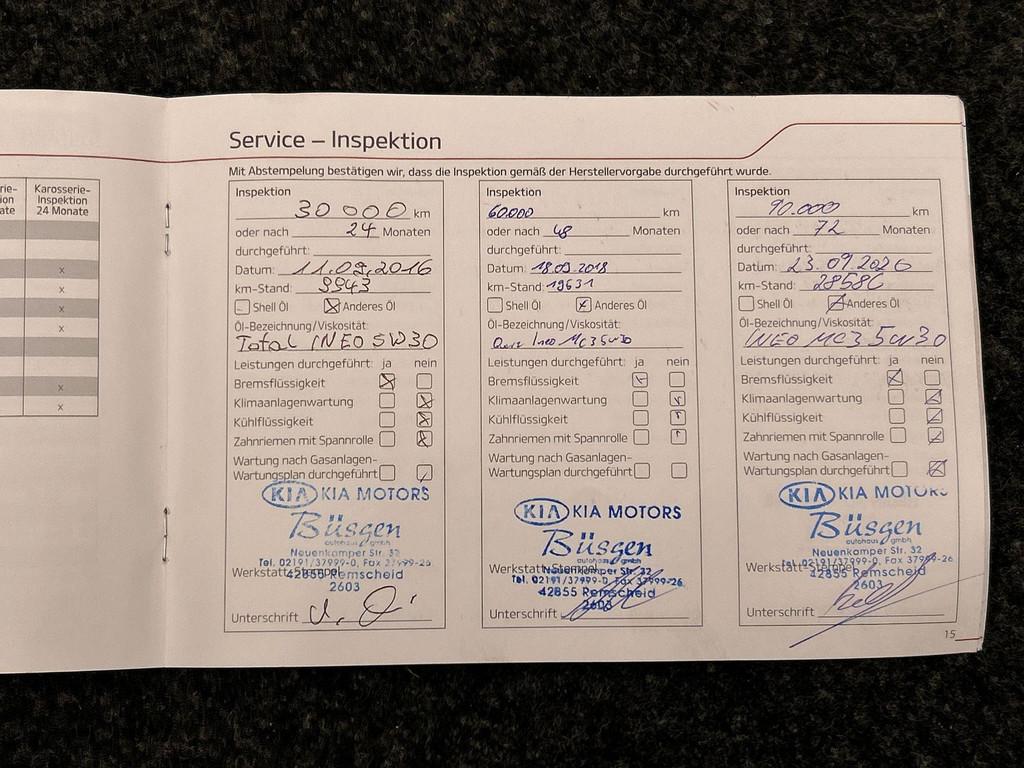 Karosserie-
Inspektion
24 Monate
x
x
x
x
x
x
Service – Inspektion
Mit Abstempelung bestätigen wir, dass die Inspektion gemäß der Herstellervorgabe durchgeführt wurde.
Inspektion
30 000 km
oder nach 24 Monaten
durchgeführt:
Datum: 11.09.2016
km-Stand: 9943
Shell Öl x Anderes Öl
Öl-Bezeichnung/Viskosität:
Total INEO 5W30
Leistungen durchgeführt: ja nein
Bremsflüssigkeit
Klimaanlagenwartung
Kühlflüssigkeit
Zahnriemen mit Spannrolle
Wartung nach Gasanlagen-
Wartungsplan durchgeführt
KIA KIA MOTORS
Büsgen
autohaus gmbh
Neuenkamper Str. 32
Tel. 02191/37999-0, Fax 37999-26
Werkstatt-Stempel
42855 Remscheid
2603
Unterschrift
Inspektion
60.000 km
oder nach 48 Monaten
durchgeführt:
Datum: 18.09.2018
km-Stand: 19631
Shell Öl x Anderes Öl
Öl-Bezeichnung/Viskosität:
Ineo MC3 5W30
Leistungen durchgeführt: ja nein
Bremsflüssigkeit
Klimaanlagenwartung
Kühlflüssigkeit
Zahnriemen mit Spannrolle
Wartung nach Gasanlagen-
Wartungsplan durchgeführt
KIA KIA MOTORS
Büsgen
autohaus gmbh
Neuenkamper Str. 32
Werkstatt-Stempel
Tel. 02191/37999-0, Fax 37999-26
42855 Remscheid
2603
Unterschrift
Inspektion
90.000 km
oder nach 72 Monaten
durchgeführt:
Datum: 23.09.2020
km-Stand: 28586
Shell Öl Anderes Öl
Öl-Bezeichnung/Viskosität:
INEO MC3 5W30
Leistungen durchgeführt: ja nein
Bremsflüssigkeit
Klimaanlagenwartung
Kühlflüssigkeit
Zahnriemen mit Spannrolle
Wartung nach Gasanlagen-
Wartungsplan durchgeführt
KIA KIA MOTORS
Büsgen
autohaus gmbh
Neuenkamper Str. 32
Tel. 02191/37999-0, Fax 37999-26
Werkstatt-Stempel
42855 Remscheid
2603
Unterschrift
15